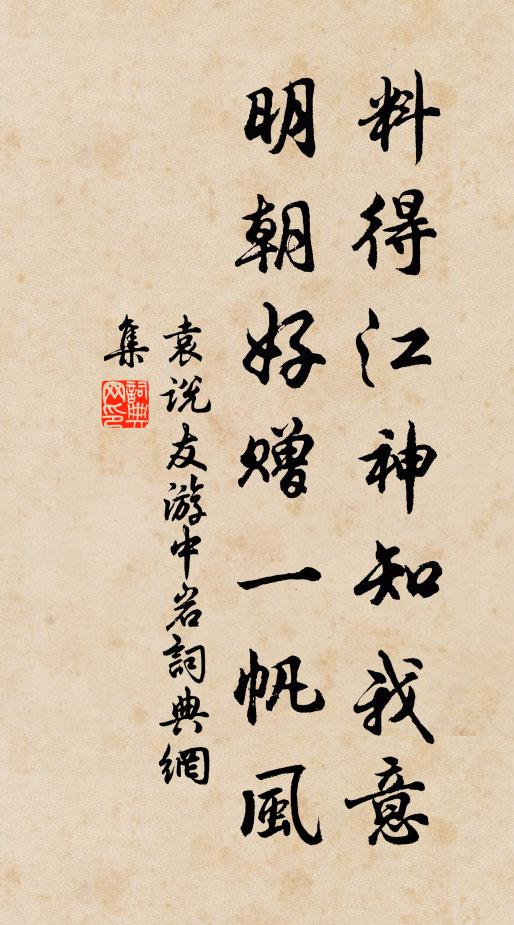 料得江神知我意
明朝好赠一帆風
袁说友游中岩詞典網
集
詞典
网印